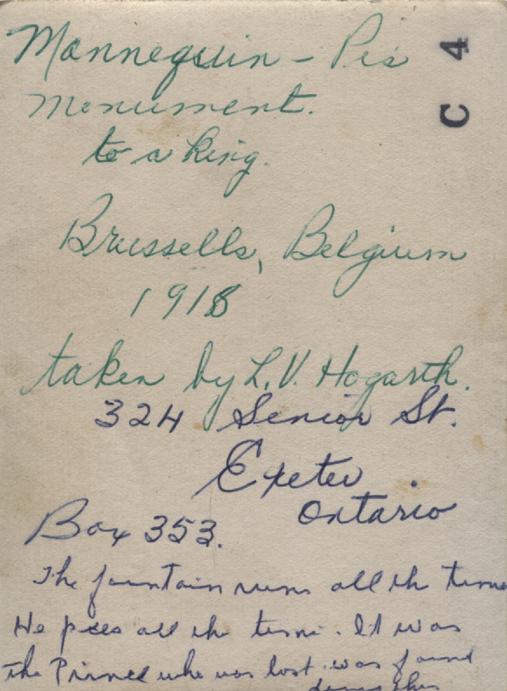 Mannequin - Pis
C 4
Monument.
to a King.
Brussells, Belgium
1918
taken by L. V. Hogarth.
324 Senior St.
Exeter
Ontario
Box 353.
The fountain runs all th time
He pees all th time. It was
the Prince who was lost. was found
doing this